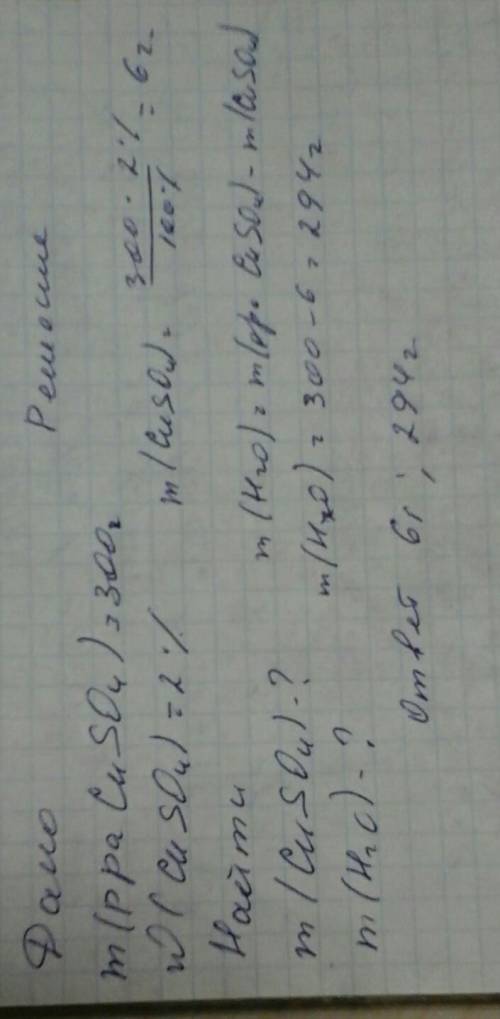 Дано
m(р-ра CuSO4) = 300г
W(CuSO4) = 2%
Найти
m(CuSO4) - ?
m(H2O) - ?
Решение
m(CuSO4) = 300 · 2% / 100% = 6г
m(H2O) = m(р-р. CuSO4) - m(CuSO4)
m(H2O) = 300 - 6 = 294г
Ответ 6г; 294г